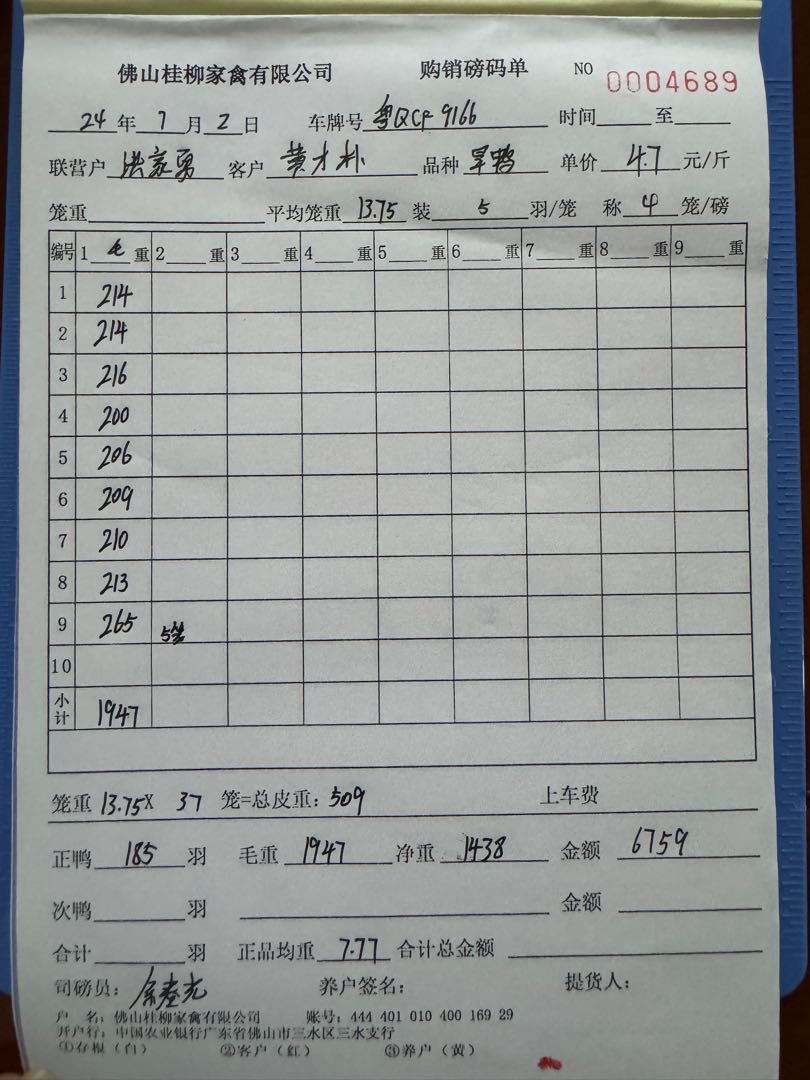 佛山桂柳家禽有限公司 购销磅码单 NO 0004689
24年7月2日 车牌号 粤QCF9166 时间 至
联营户 洪家勇 客户 黄才朴 品种 旱鸭 单价 4.7 元/斤
笼重 平均笼重 13.75 装 5 羽/笼 称 4 笼/磅
编号 1 毛 重 2 重 3 重 4 重 5 重 6 重 7 重 8 重 9 重
1 214
2 214
3 216
4 200
5 206
6 209
7 210
8 213
9 265 5笼
10
小计 1947
笼重 13.75X 37 笼=总皮重:509 上车费
正鸭 185 羽 毛重 1947 净重 1438 金额 6759
次鸭 羽 金额
合计 羽 正品均重 7.77 合计总金额
司磅员: 养户签名: 提货人:
户 名:佛山桂柳家禽有限公司 账号:444 401 010 400 169 29
开户行:中国农业银行广东省佛山市三水区三水支行
①存根(白) ②客户(红) ③养户(黄)